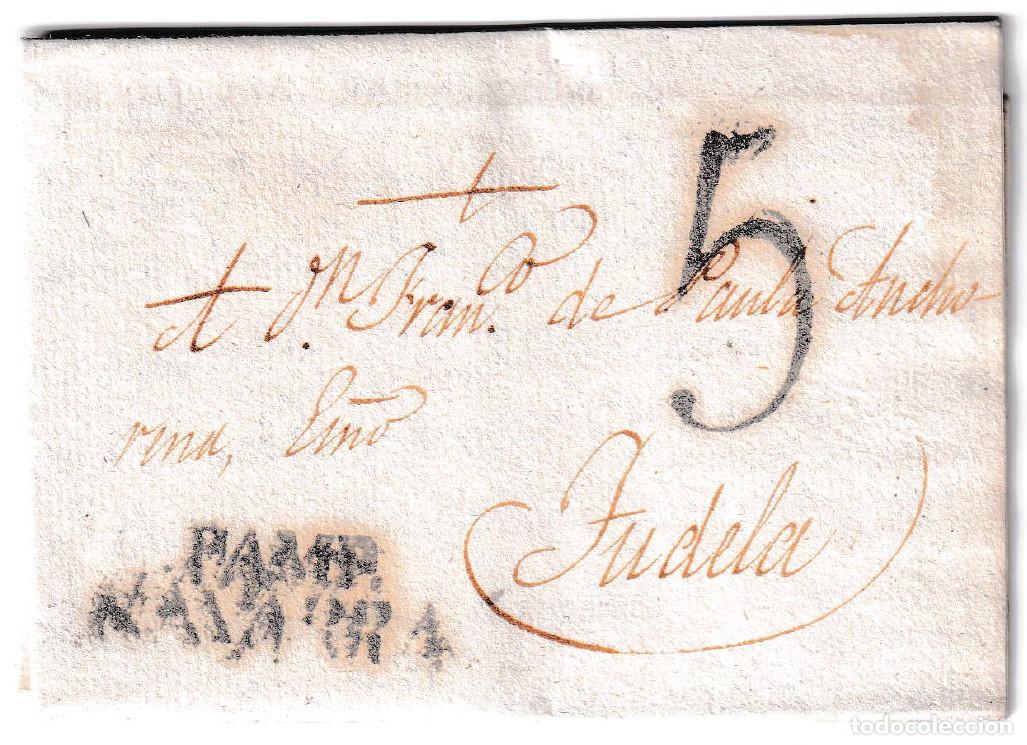 5
A D.n Fran.co de Paula Ancho-
rena, Essno
Tudela
PAMP.
NAVARRA
todocoleccion